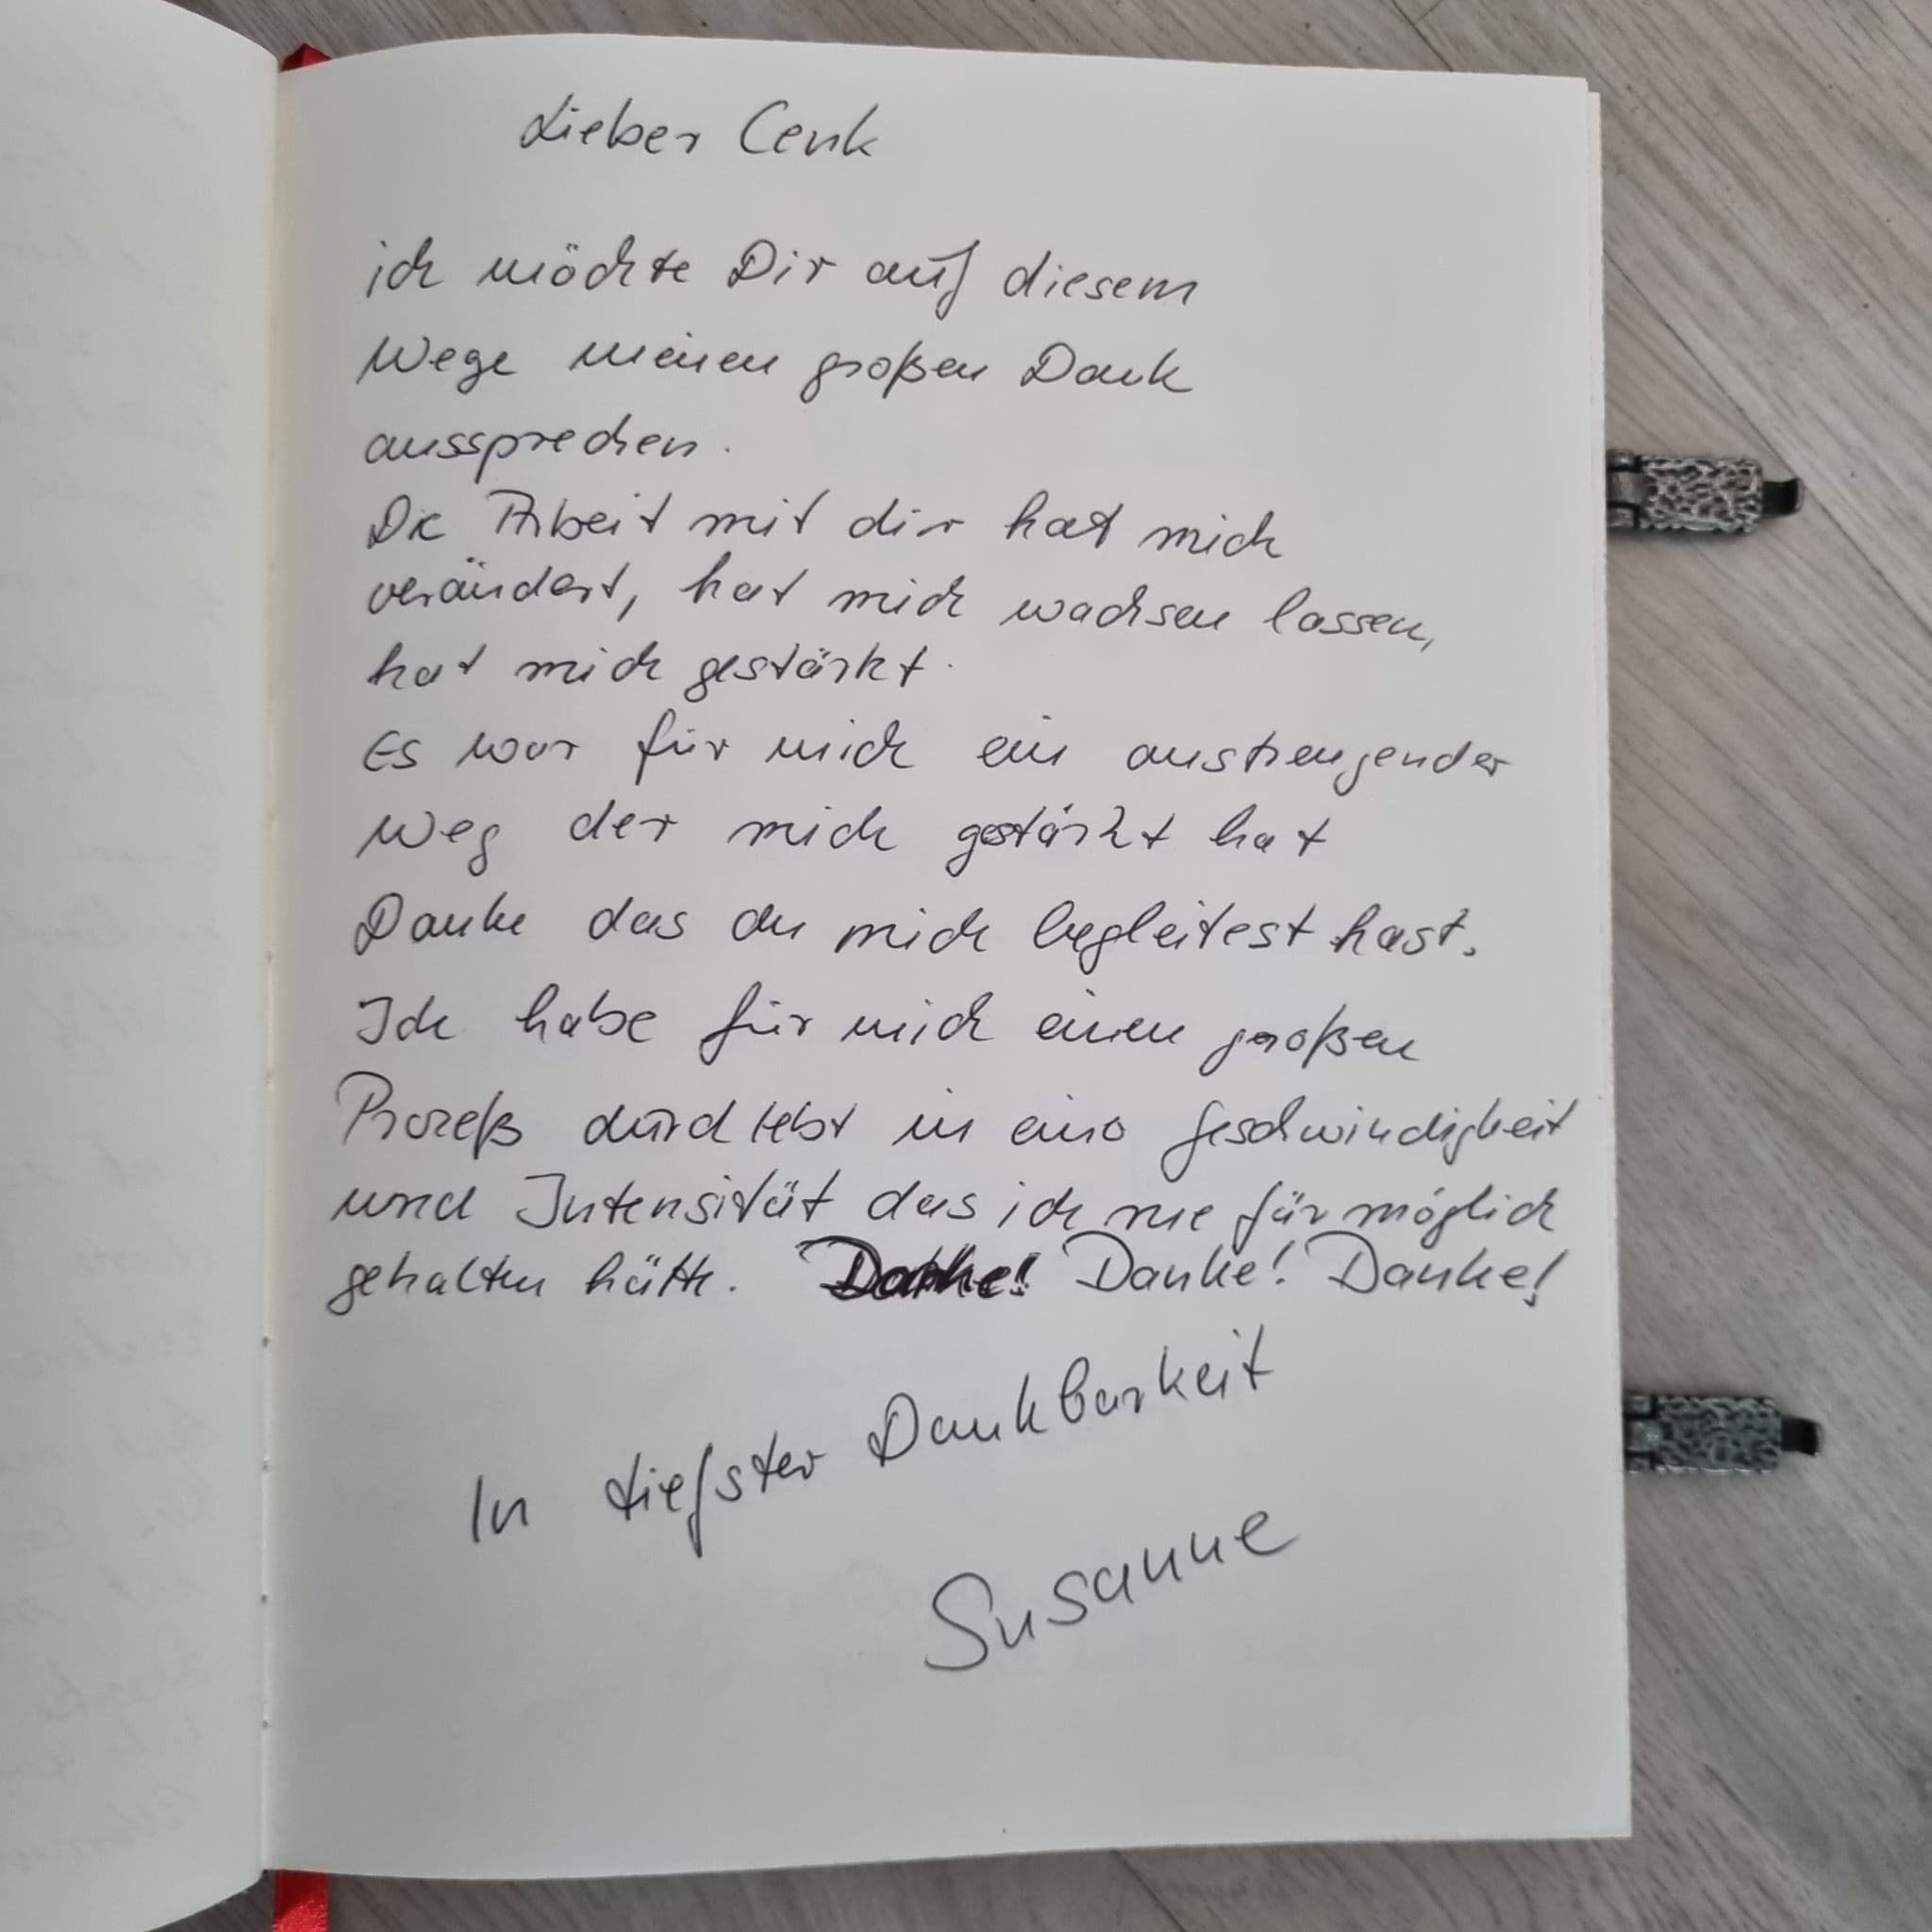 Lieber Cenk
ich möchte Dir auf diesem
Wege meinen großen Dank
aussprechen.
Die Arbeit mit dir hat mich
verändert, hat mich wachsen lassen,
hat mich gestärkt.
Es war für mich ein anstrengender
Weg der mich gestärkt hat
Danke das du mich begleitest hast.
Ich habe für mich einen großen
Prozeß durchlebt in einer Geschwindigkeit
und Intensität das ich nie für möglich
gehalten hätte. Danke! Danke! Danke!
In tiefster Dankbarkeit
Susanne